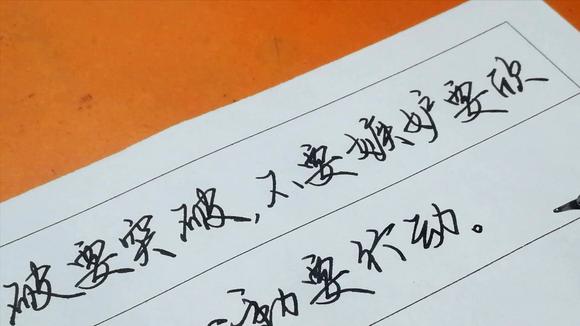 破要突破,不要嫉妒要欣
动要行动。